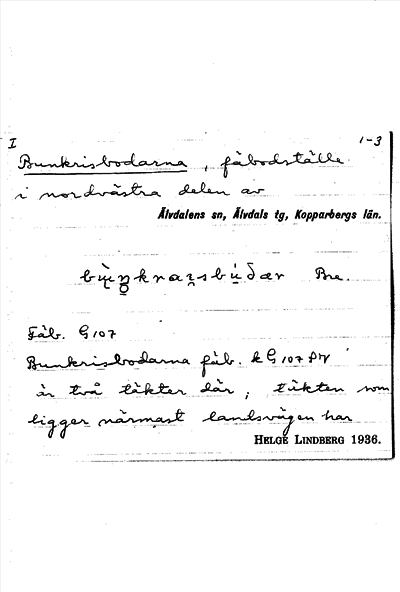 I 1-3
Bunkrisbodarna, fäbodställe
i nordvästra delen av
Älvdalens sn, Älvdals tg, Kopparbergs län.
Bre.
Fäb. G 107
Bunkrisbodarna fäb. k G 107
är två täkter där; täkten som
ligger närmast landsvägen har
HELGE LINDBERG 1936.